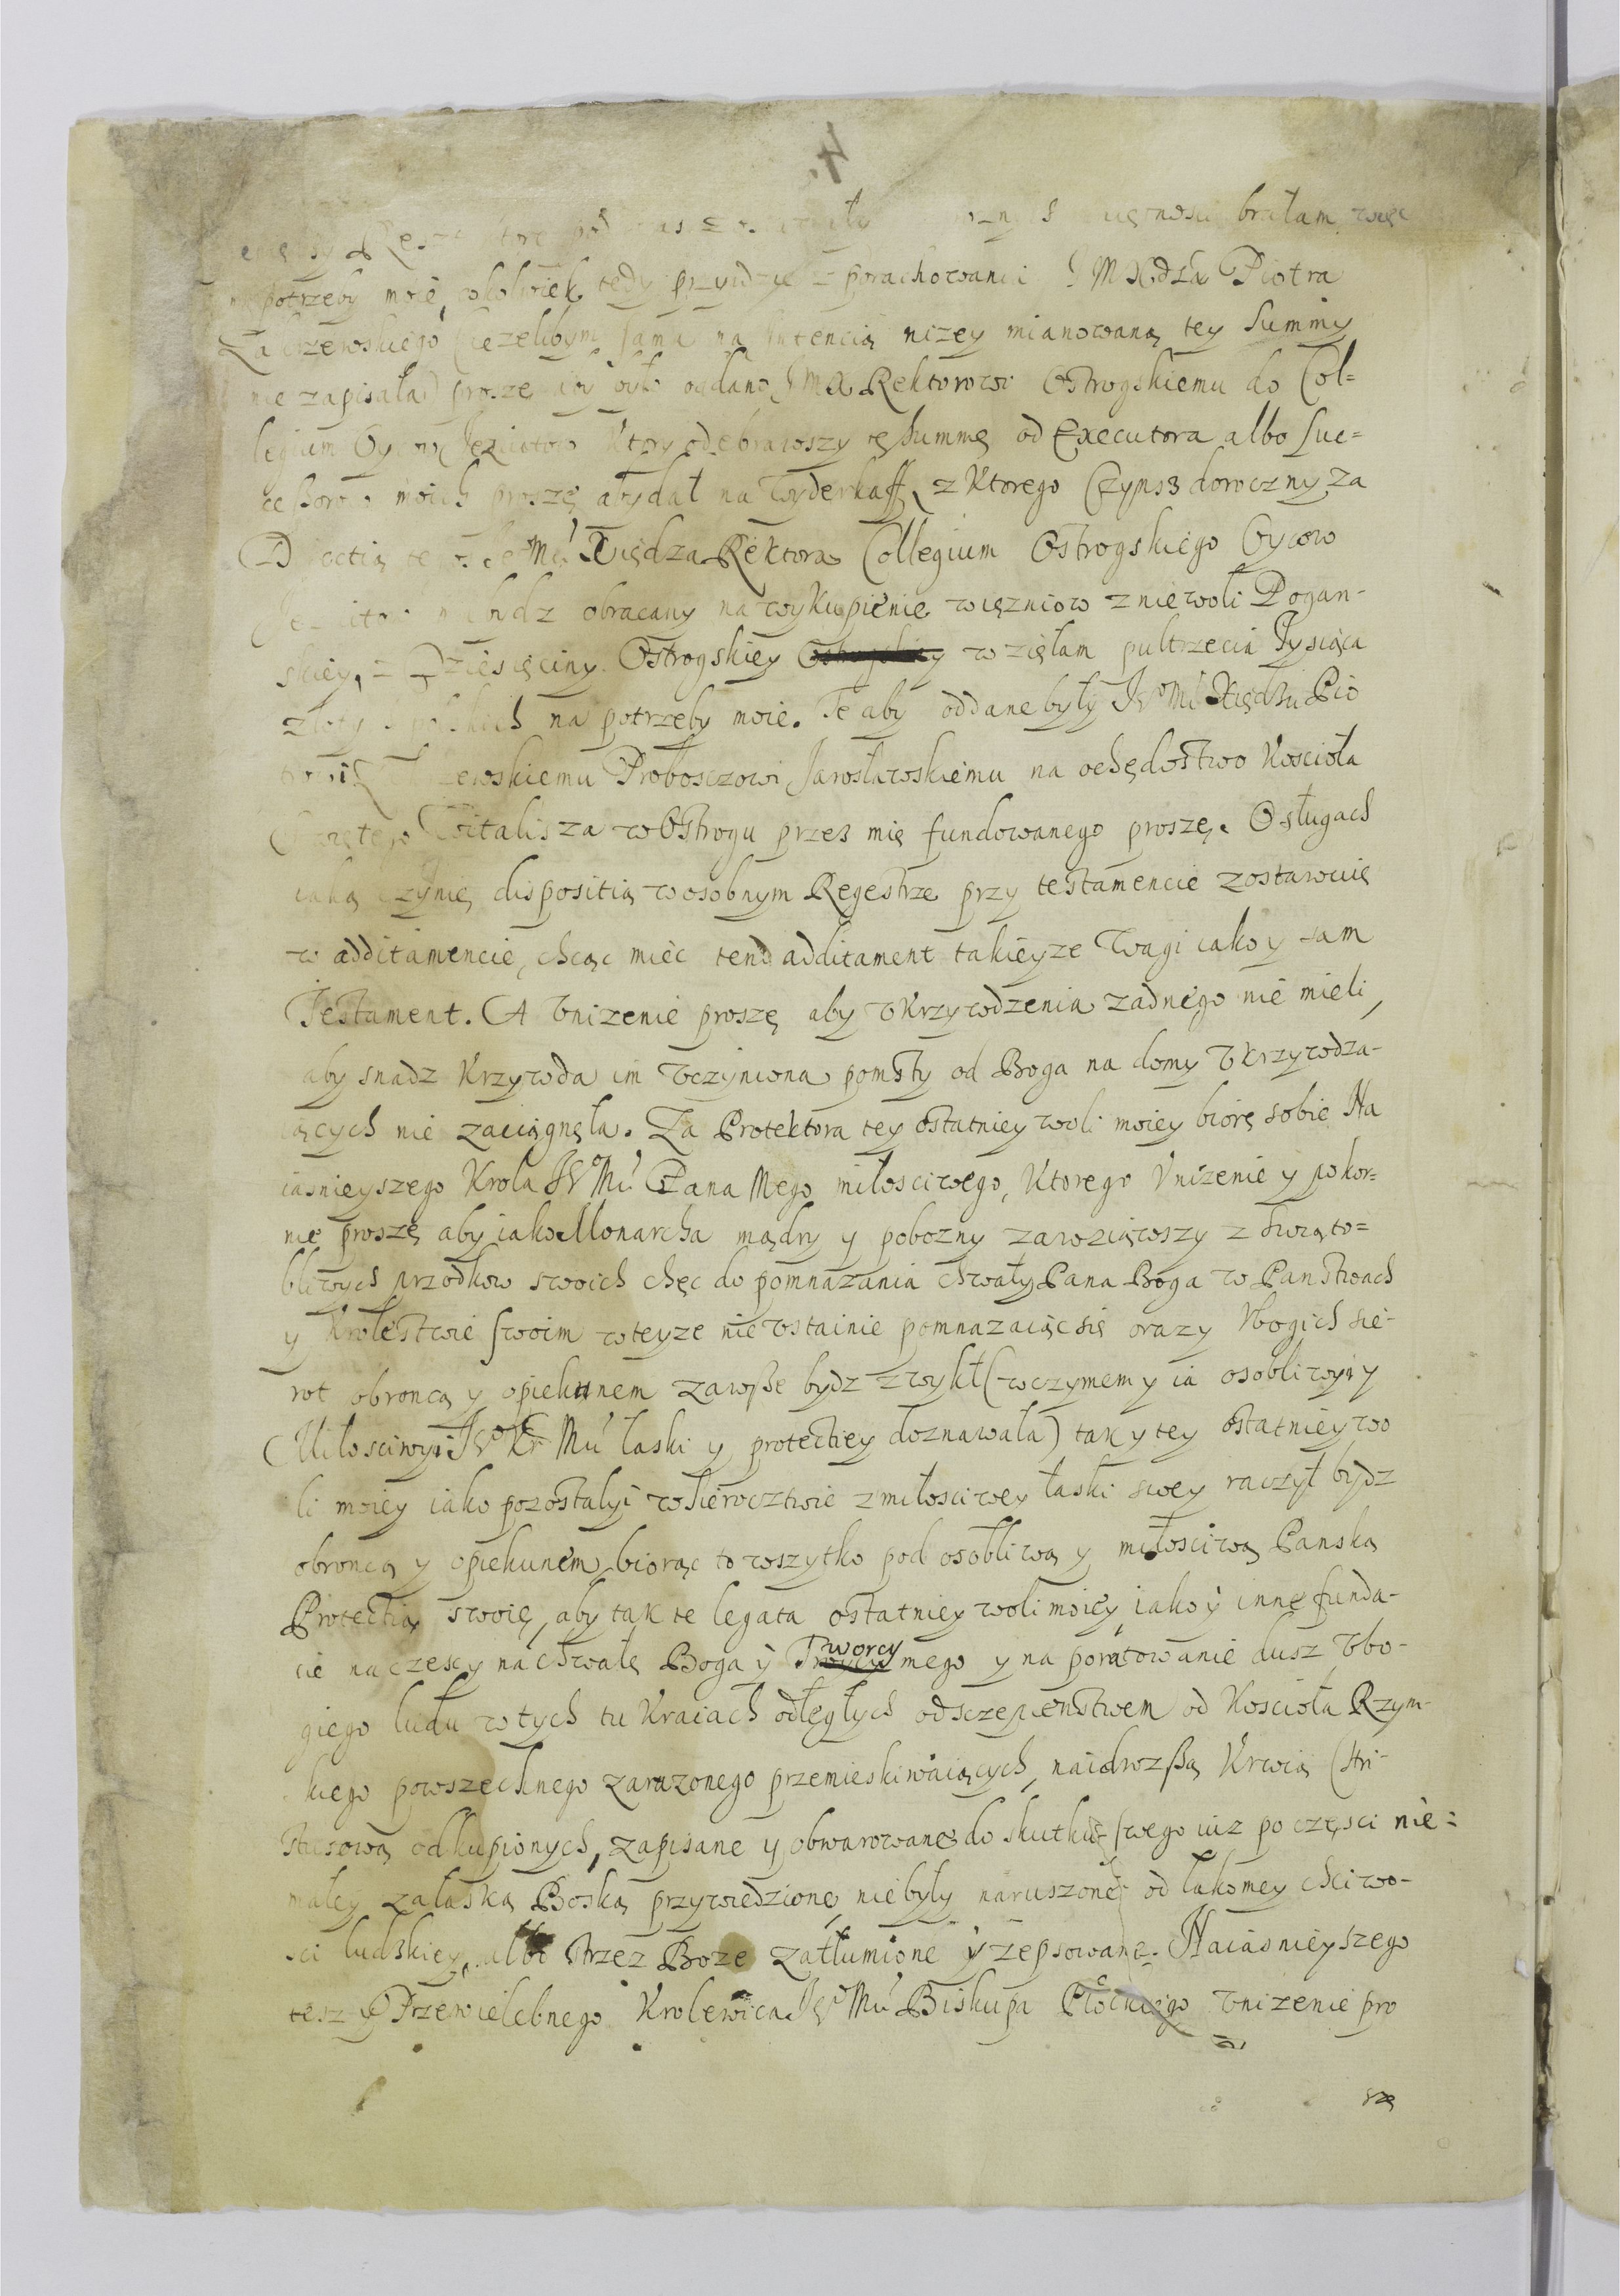 4.
brałam, więc
na potrzeby moie, cokolwiek tedy przyidzie z porachowania JMXdza Piotra
Zakrzewskiego (iezelibym sama na Intencią nizey mianowaną tey Summy
nie zapisała) proszę aby było oddano JMX Rektorowi Ostrogskiemu do Col=
legium Oycow Jezuitow Ktory odebrawszy tę Summę od Executora albo Suc=
cessorow moich proszę aby dał na Wyderkaff, z Ktorego Czynsz doroczny za
Mći Xiędza Rektora Collegium Ostrogskiego Oycow
bydz obracany na wykupienie więzniow z niewoli Pogan-
skiey, z Dziesięciny Ostrogskiey wzięłam pultrzecia Tysiąca
złotych polskich na potrzeby moie. Te aby oddane były JeoMći Xiędzu Pio
trowi Zakrzewskiemu Proboszczowi Jarosławskiemu na ochędostwo Kościoła
Swiętego Witalisza w Ostrogu przez mię fundowanego proszę. O sługach
iaką czynię dispositią w osobnym Regestrze przy testamencie zostawuię
w additamencie, chcąc mieć tend additament takieyze Wagi iako y sam
Testament. A Vnizenie proszę aby Vkrzywdzenia zadnego nie mieli,
aby snadz Krzywda im Vczyniona pomsty od Boga na domy Vkrzywdza-
iących nie zaciągnęła. Za Protektora tey ostatniey woli moiey biorę sobie Na
iasnieyszego Krola JeoMći Pana Mego miłosciwego, Ktorego Vnizenie y pokor=
nie proszę aby iako Monarcha mądry y pobozny zawziąwszy z Swiąto=
bliwych przodkow swoich chęc do pomnazania chwały Pana Boga w Panstwach
y Krolestwie swoim w teyze nie Vstainie pomnazaiąc się oraz y Vbogich sie-
rot obroncą y opiekunem zawsze bydz zwykł (w czymem y ia osobliwyi y
Miłosciwyi JeoKr Mći łaski y protectiey doznawała) tak y tey ostatniey wo
li moiey iako pozostałyi w sieroctwie z miłosciwey łaski swey raczył bydz
obroncą y opiekunem, biorąc to wszytko pod osobliwą y miłosciwą Panską
Protectią swoię, aby tak te legata ostatniey woli moiey, iako y inne funda-
cie na czesc y na chwałę Boga y Tworcy mego y na poratowanie dusz Vbo-
giego ludu w tych tu Kraiach odległych odszczepienstwem od Kościoła Rzym-
skiego powszechnego zarazonego przemieskiwaiących, naidrozszą Krwią Chri-
stusową odkupionych, zapisane y obwarowane do skutku swego iuz po częsci nie=
małey za łaską Boską przywiedzione, nie były naruszone od łakomey chciwo-
sci ludzkiey, albo strzez Boze zatłumione y zepsowane. Naiasnieyszego
tesz y Przewielebnego Krolewica JeoMći Biskupa Płockiego Vnizenie pro
szę